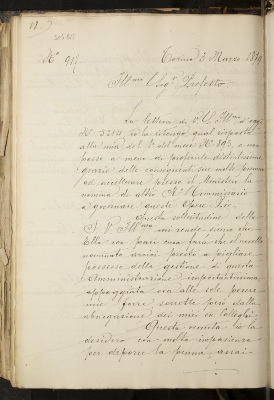 N° 917
Torino 3 Marzo 1879
Ill.mo Sig.r Prefetto
La lettera di V.S. Ill.ma d'oggi
N. 3214 io la ritengo qual risposta
alla mia del 1° del mese N. 893, e non
posso a meno di proferirle distintissime
grazie delle conseguenti sue nella premura
ad accelerare presso il Ministero la
nomina di altro R. Commissario
a governare queste Opere Pie.
Questa sollecitudine della
S. V. Ill.ma mi rende sicuro che
Ella con pari cura farà che il novello
nominato arrivi presto a pigliare
possesso della gestione di questa
Amministrazione importantissima
appoggiata ora alle sole povere
mie forze sorrette però dalla
abnegazione dei miei ex Colleghi.
Questa venuta io la
desidero con molta impazienza
per deporre la penna assai